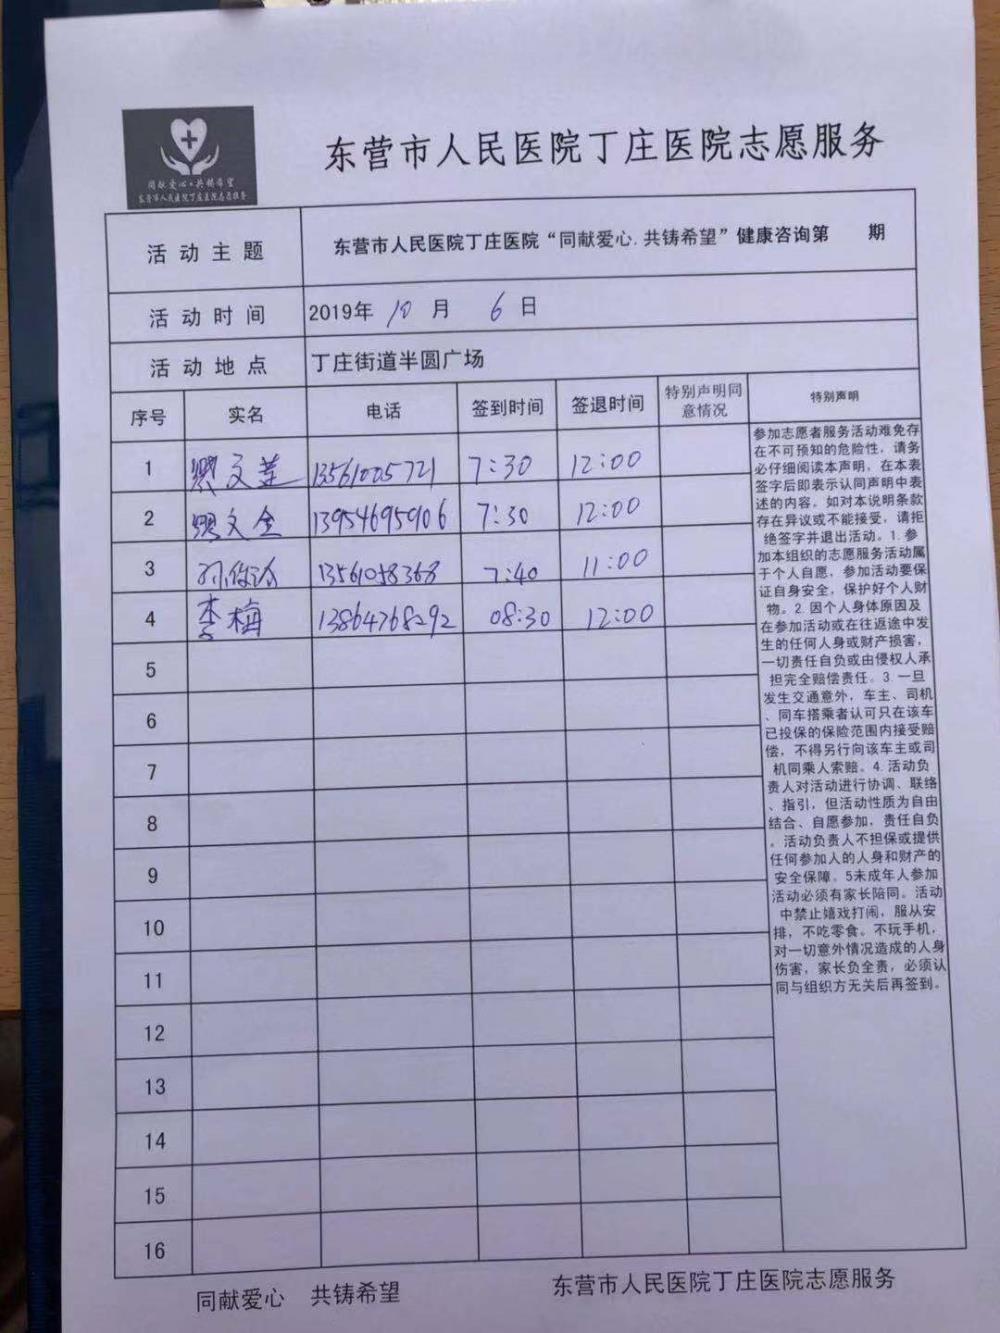 同献爱心·共铸希望
东营市人民医院丁庄医院志愿服务
东营市人民医院丁庄医院志愿服务
活动主题 东营市人民医院丁庄医院“同献爱心.共铸希望”健康咨询第 期
活动时间 2019年 10 月 6 日
活动地点 丁庄街道半圆广场
序号 实名 电话 签到时间 签退时间 特别声明同意情况 特别声明
1 文莲 13561005721 7:30 12:00
2 文全 13954695906 7:30 12:00
3 孙俊 13561058368 7:40 11:00
4 李梅 13864768292 08:30 12:00
5
6
7
8
9
10
11
12
13
14
15
16
参加志愿者服务活动难免存
在不可预知的危险性，请务
必仔细阅读本声明，在本表
签字后即表示认同声明中表
述的内容，如对本说明条款
存在异议或不能接受，请拒
绝签字并退出活动。1.参
加本组织的志愿服务活动属
于个人自愿，参加活动要保
证自身安全，保护好个人财
物。2.因个人身体原因及
在参加活动或在往返途中发
生的任何人身或财产损害，
一切责任自负或由侵权人承
担完全赔偿责任。3.一旦
发生交通意外，车主、司机
、同车搭乘者认可只在该车
已投保的保险范围内接受赔
偿，不得另行向该车主或司
机同乘人索赔。4.活动负
责人对活动进行协调、联络
、指引，但活动性质为自由
结合、自愿参加，责任自负
。活动负责人不担保或提供
任何参加人的人身和财产的
安全保障。5未成年人参加
活动必须有家长陪同。活动
中禁止嬉戏打闹，服从安
排，不吃零食。不玩手机，
对一切意外情况造成的人身
伤害，家长负全责，必须认
同与组织方无关后再签到。
同献爱心 共铸希望 东营市人民医院丁庄医院志愿服务